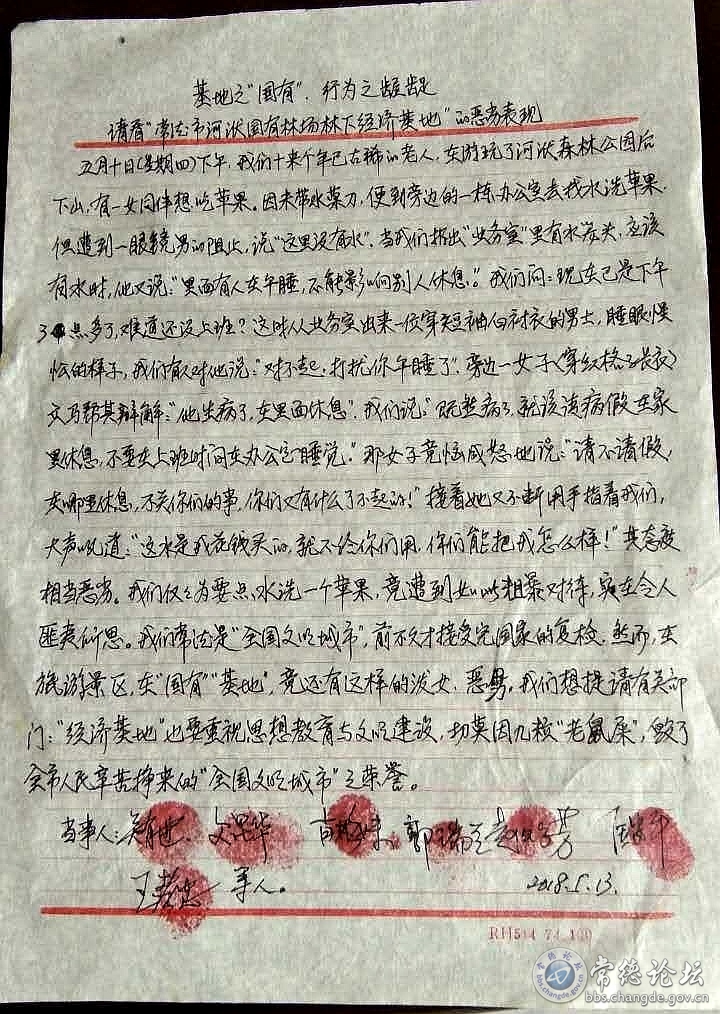 基地之“国有”，行为之龌龊
请看“常德市河洑国有林场林下经济基地”的恶劣表现
五月十日(星期四)下午，我们十来个年已古稀的老人，在游玩了河洑森林公园后
下山，有一女同伴想吃苹果。因未带水菓刀，便到旁边的一栋办公室去找水洗苹果。
但遭到一眼镜男的阻止，说“这里没有水”，当我们指出“业务室”里有水龙头，应该
有水时，他又说：“里面有人在午睡，不能影响别人休息。”我们问：现在已是下午
3点多了，难道还没上班？这时从业务室出来一位穿短袖白衬衣的男士，睡眼惺
忪的样子，我们有人对他说：“对不起，打扰你午睡了”，旁边一女子(穿红格子长衣)
立马帮其辩解：“他生病了，在里面休息”，我们说：“既然病了，就该请病假在家
里休息，不要在上班时间在办公室睡觉。”那女子竟恼成怒地说：“请不请假，
在哪里休息，不关你们的事，你们又有什么了不起的！”接着她又不断用手指着我们，
大声吼道：“这水是我花钱买的，就不给你们用，你们能把我怎么样！”其态度
相当恶劣。我们仅仅为要点水洗一个苹果，竟遭到如此粗暴对待，实在令人
匪夷所思。我们常德是“全国文明城市”，前不久才接受完国家的复检，然而，在
旅游景区，在“国有”“基地”，竟还有这样的泼女、恶男。我们想提请有关部
门：“经济基地”也要重视思想教育与文明建设，切莫因几粒“老鼠屎”，毁了
全市人民辛苦挣来的“全国文明城市”之荣誉。
当事人： 郭瑞兰
等人。 2018.5.13.
常德论坛
bbs.changde.gov.cn